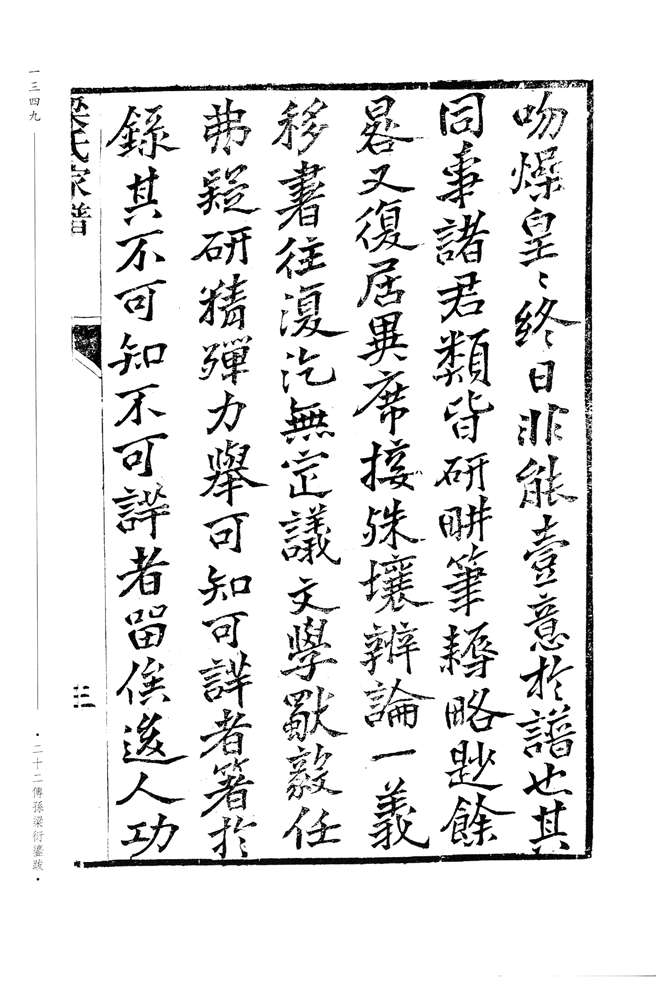 吻燥皇〻終日非能壹意於譜也其
同事諸君類皆研畊筆耨略尟餘
晷又復居異席接殊壤辦論一義
移書往復汔無定議文學獸毅任
弗疑研精殫力舉可知可譯者箸於
錄其不可知不可譯者畱俟後人功
梁氏家譜
三
一三四九
·二十二傳孫梁衍鎏跋·